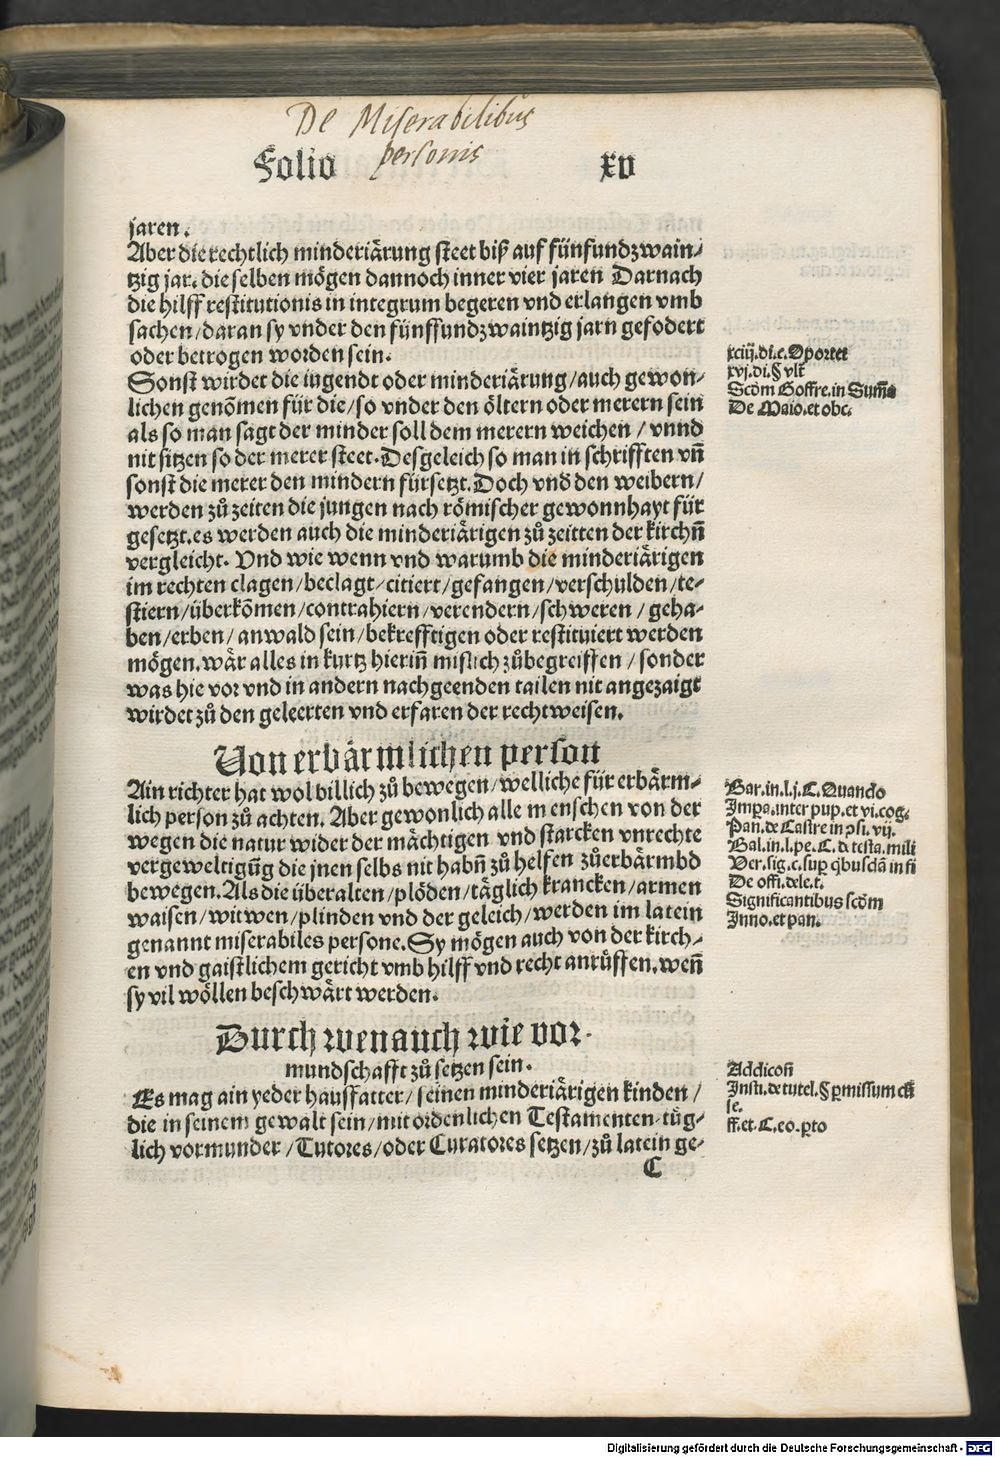 De Miserabilibus
personis
Folio xv
jaren.
Aber die rechtlich minderiärung steet biß auf fünfundzwain⸗
tzig jar. die selben mögen dannoch inner vier jaren Darnach
die hilff restitutionis in integrum begeren vnd erlangen vmb
sachen/daran sy vnder den fünffundzwaintzig jarn gefodert
oder betrogen worden sein.
Sonst wirdet die iugendt oder minderiärung/auch gewon⸗
lichen genõmen für die/so vnder den öltern oder merern sein
als so man sagt der minder soll dem merern weichen/vnnd
nit sitzen so der merer steet. Desgeleich so man in schrifften vñ
sonst die merer den mindern fürsetzt. Doch vnd̄ den weibern/
werden zů zeiten die jungen nach römischer gewonnhayt für
gesetzt. es werden auch die minderiärigen zů zeitten der kirchñ
vergleicht. Vnd wie wenn vnd warumb die minderiärigen
im rechten clagen/beclagt/citiert/gefangen/verschulden/te⸗
stiern/überkõmen/contrahiern/verendern/schweren/geha⸗
ben/erben/anwald sein/bekrefftigen oder restituiert werden
mögen. wär alles in kurtz hieriñ mislich zůbegreiffen/sonder
was hie vor vnd in andern nachgeenden tailen nit angezaigt
wirdet zů den geleerten vnd erfaren der recht weisen.
xciij.di.c.Oportet
xvj.di.§ vlt̄
Scd̄m Goffre.in Sum̄a
De Maio.et obe.
Von erbärmlichen person
Ain richter hat wol billich zů bewegen/welliche für erbärm⸗
lich person zů achten. Aber gewonlich alle menschen von der
wegen die natur wider der mächtigen vnd starcken vnrechte
vergeweltigũg die jnen selbs nit habñ zů helfen zůerbärmbd
bewegen. Als die überalten/plöden/täglich krancken/armen
waisen/witwen/plinden vnd der geleich/werden im latein
genannt miserabiles persone. Sy mögen auch von der kirch⸗
en vnd gaistlichem gericht vmb hilff vnd recht anrůffen. weñ
sy vil wöllen beschwärt werden.
Bar.in.l.j.C.Quando
Impa.inter pup.et vi.cog.
Pan.de Castre in ꝯsi.vij.
Bal.in.l.pe.C.de testa.mili
Ver.sig.c.suꝑ qibusdā in fi
De offi.dele.t.
Significantibus scd̄m
Inno.et pan.
Durch wen auch wie vor⸗
mundschafft zů setzen sein.
Es mag ain yeder hauſfatter/seinen minderiärigen kinden/
die in seinem gewalt sein/mit ordenlichen Testamenten tüg⸗
lich vormunder/Tutores/oder Curatores setzen/zů latein ge⸗
C
Addicoñ
Insti.de tutel.§ ꝑmissum
le.
ff.et.C.eo.ꝑto
Digitalisierung gefördert durch die Deutsche Forschungsgemeinschaft - DFG